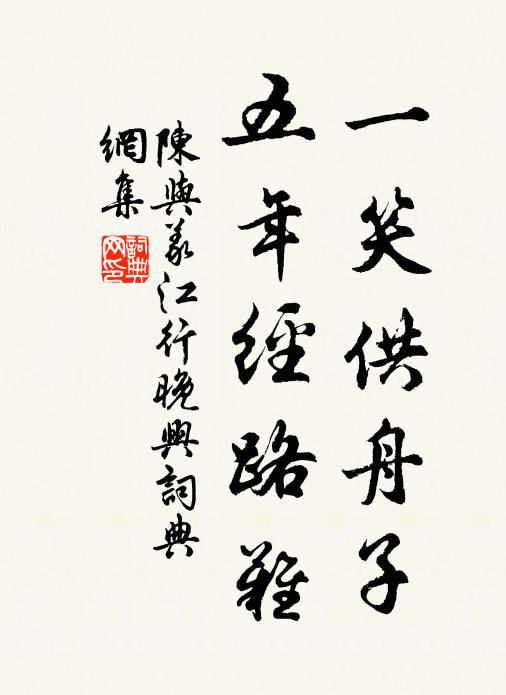 一笑供舟子
五年經路難
陳與義江行晚興詞典
網集
詞典
网印